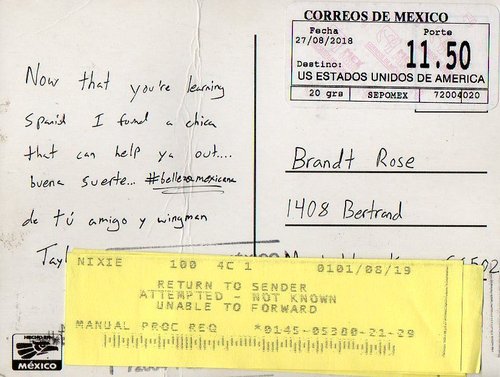 Now that you're learning
Spanish I found a chica
that can help ya out....
buena suerte... #bellezamexicana
de tú amigo y wingman
CORREOS DE MEXICO
Fecha
27/08/2018
Porte
11.50
Destino:
US ESTADOS UNIDOS DE AMERICA
20 grs
SEPOMEX
72004020
Brandt Rose
1408 Bertrand
NIXIE 100 4C 1 0101/08/19
RETURN TO SENDER
ATTEMPTED - NOT KNOWN
UNABLE TO FORWARD
MANUAL PROC REQ *0145-05380-21-29
HECHO EN
MÉXICO